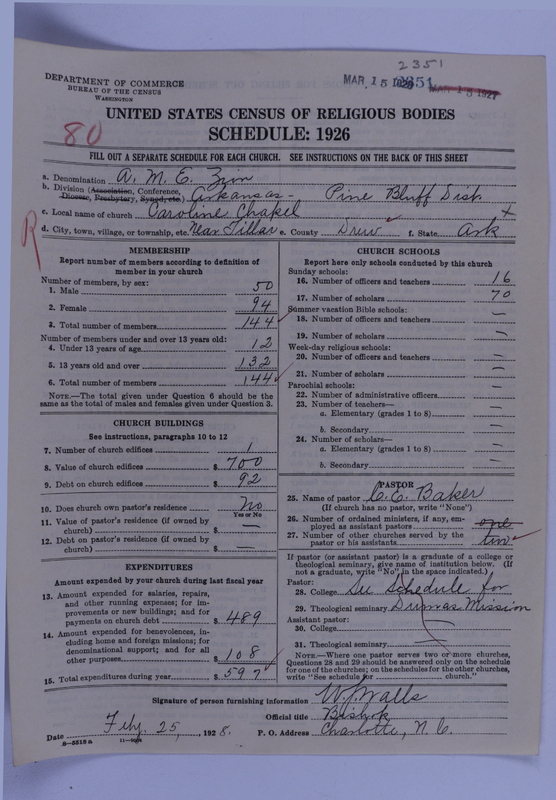 2351
MAR 15 1928 2351 MAR 15 1927
DEPARTMENT OF COMMERCE
BUREAU OF THE CENSUS
WASHINGTON
UNITED STATES CENSUS OF RELIGIOUS BODIES
SCHEDULE: 1926
80
FILL OUT A SEPARATE SCHEDULE FOR EACH CHURCH. SEE INSTRUCTIONS ON THE BACK OF THIS SHEET
a. Denomination A. M. E. Zion
b. Division (Association, Conference, Diocese, Presbytery, Synod, etc.) Arkansas - Pine Bluff Dist.
c. Local name of church Caroline Chapel
d. City, town, village, or township, etc. Near Tillar e. County Drew f. State Ark
R
MEMBERSHIP
Report number of members according to definition of
member in your church
Number of members, by sex:
1. Male 50
2. Female 94
3. Total number of members 144
Number of members under and over 13 years old:
4. Under 13 years of age 12
5. 13 years old and over 132
6. Total number of members 144
NOTE.—The total given under Question 6 should be
same as the total of males and females given under Question 3.
CHURCH BUILDINGS
See instructions, paragraphs 10 to 12
7. Number of church edifices 1
8. Value of church edifices $ 700
9. Debt on church edifices $ 92
10. Does church own pastor's residence No
Yes or No
11. Value of pastor's residence (if owned by
church) $ —
12. Debt on pastor's residence (if owned by
church) $ —
EXPENDITURES
Amount expended by your church during last fiscal year
13. Amount expended for salaries, repairs,
and other running expenses; for im-
provements or new buildings; and for
payments on church debt $ 489
14. Amount expended for benevolences, in-
cluding home and foreign missions; for
denominational support; and for all
other purposes $ 108
15. Total expenditures during year $ 597
CHURCH SCHOOLS
Report here only schools conducted by this church
Sunday schools:
16. Number of officers and teachers 16
17. Number of scholars 70
Summer vacation Bible schools:
18. Number of officers and teachers —
19. Number of scholars —
Week-day religious schools:
20. Number of officers and teachers —
21. Number of scholars —
Parochial schools:
22. Number of administrative officers —
23. Number of teachers—
a. Elementary (grades 1 to 8) —
b. Secondary —
24. Number of scholars—
a. Elementary (grades 1 to 8) —
b. Secondary —
PASTOR
25. Name of pastor C. E. Baker
(If church has no pastor, write "None")
26. Number of ordained ministers, if any, em-
ployed as assistant pastors one
27. Number of other churches served by the
pastor or his assistants
If pastor (or assistant pastor) is a graduate of a college or
theological seminary, give name of institution below. (If
not a graduate, write "No" in the space indicated.)
Pastor:
28. College See Schedule for
29. Theological seminary Dumas Mission
Assistant pastor:
30. College
31. Theological seminary
NOTE.—Where one pastor serves two or more churches,
Questions 28 and 29 should be answered only on the schedule
for one of the churches; on the schedules for the other churches,
write "See schedule for church."
Signature of person furnishing information W. J. Walls
Official title Bishop
Date Feby. 25, 1928. P. O. Address Charlotte, N. C.